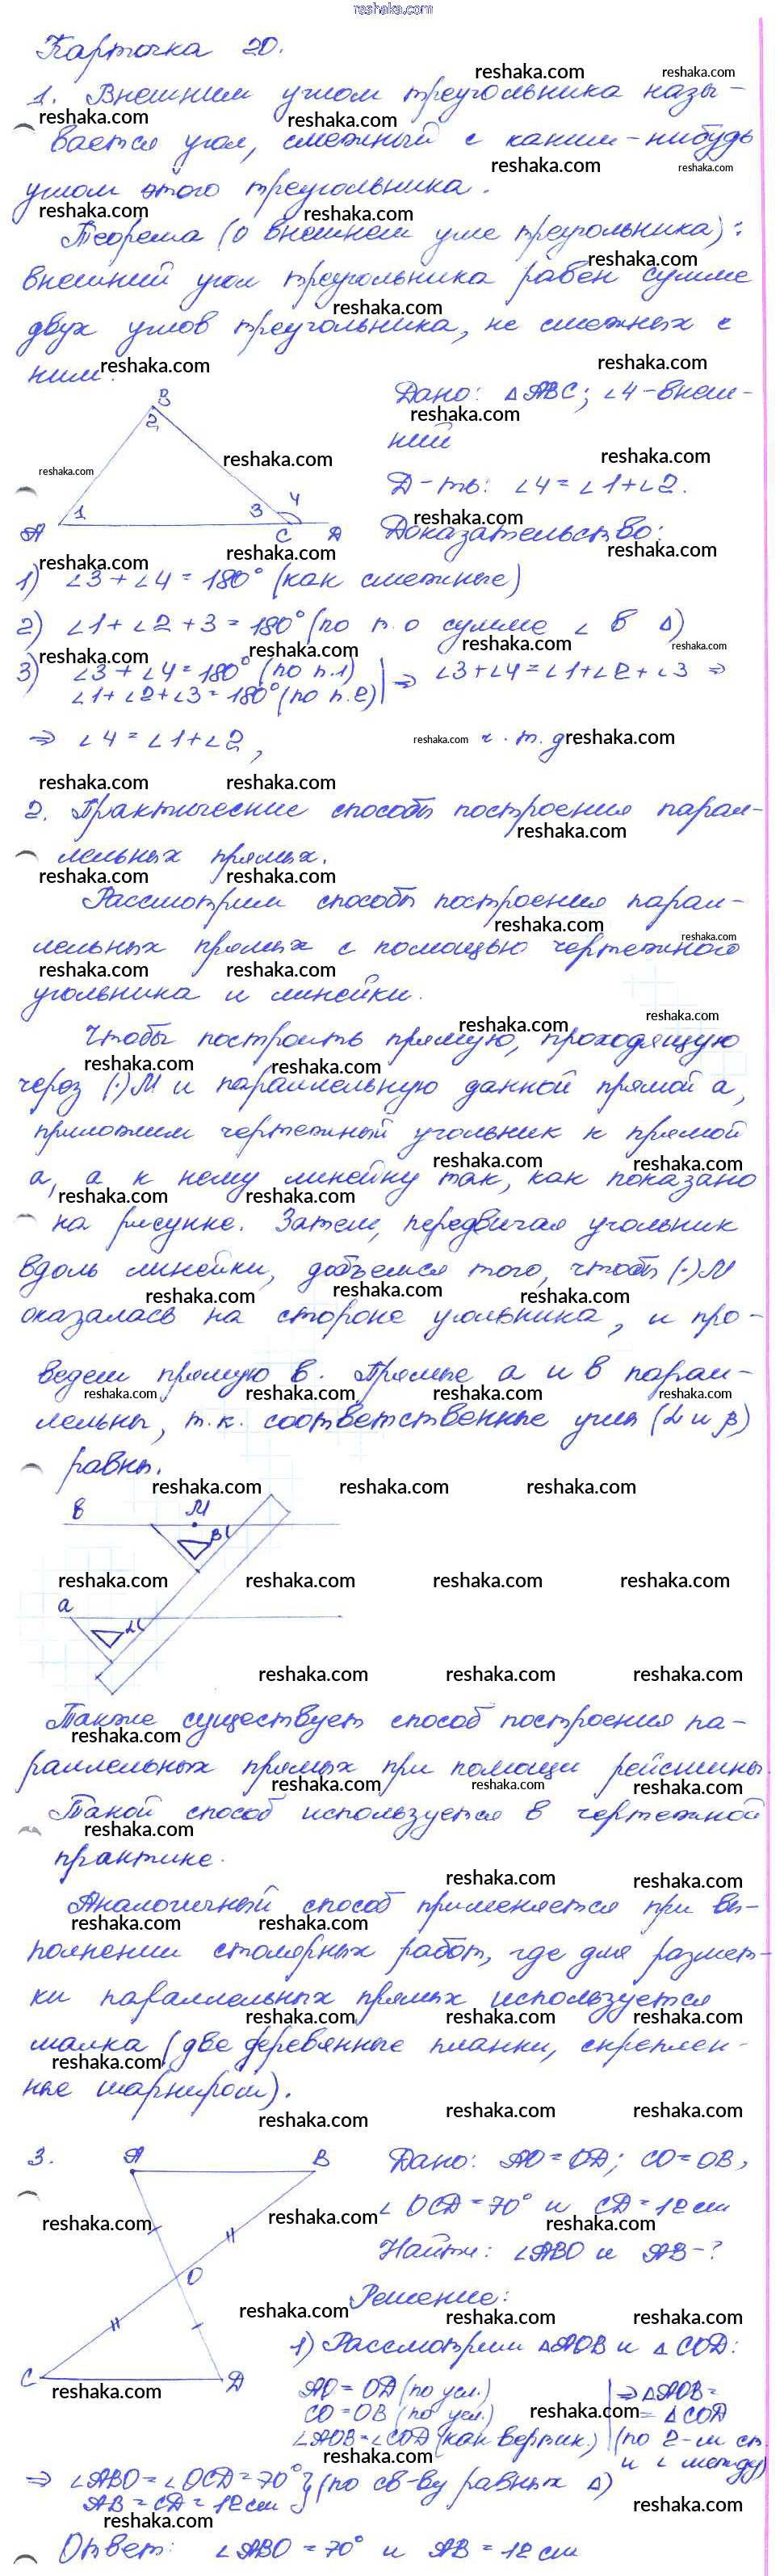 reshaka.com
Карточка 20.
1. Внешним углом треугольника назы-
вается угол, смежный с каким-нибудь
углом этого треугольника.
Теорема (о внешнем угле треугольника):
внешний угол треугольника равен сумме
двух углов треугольника, не смежных с
ним.
Дано: △ABC; ∠4 - внеш-
ний
Д-ть: ∠4 = ∠1+∠2.
Доказательство:
B
2
1
3
4
A
C
D
1) ∠3 + ∠4 = 180° (как смежные)
2) ∠1 + ∠2 + 3 = 180° (по т. о сумме ∠ в △)
3) ∠3 + ∠4 = 180° (по п.1) | ⇒ ∠3+∠4 = ∠1+∠2 + ∠3 ⇒
∠1 + ∠2 + ∠3 = 180° (по п.2)
⇒ ∠4 = ∠1+∠2, ч.т.д
2. Практические способы построения парал-
лельных прямых.
Рассмотрим способы построения парал-
лельных прямых с помощью чертежного
угольника и линейки.
Чтобы построить прямую, проходящую
через (·) M и параллельную данной прямой a,
приложим чертежный угольник к прямой
a, а к нему линейку так, как показано
на рисунке. Затем, передвигая угольник
вдоль линейки, добъемся того, чтобы (·) M
оказалась на стороне угольника, и про-
ведем прямую b. Прямые a и b парал-
лельны, т.к. соответственные углы (α и β)
равны.
b
M
β
a
α
Также существует способ построения па-
раллельных прямых при помощи рейсшины.
Такой способ используется в чертежной
практике.
Аналогичный способ применяется при вы-
полнении столярных работ, где для размет-
ки параллельных прямых используется
малка (две деревянные планки, скреплен-
ные шарниром).
3.
A
B
O
C
D
Дано: AO = OD; CO = OB,
∠OCD = 70° и CD = 12 см
Найти: ∠ABO и AB - ?
Решение:
1) Рассмотрим △AOB и △COD:
AO = OD (по усл.) | ⇒ △AOB =
CO = OB (по усл.) = △COD
∠AOB = ∠COD (как вертик.) (по 2-м ст.
и ∠ между)
⇒ ∠ABO = ∠OCD = 70° } (по св-ву равных △)
AB = CD = 12 см
Ответ: ∠ABO = 70° и AB = 12 см